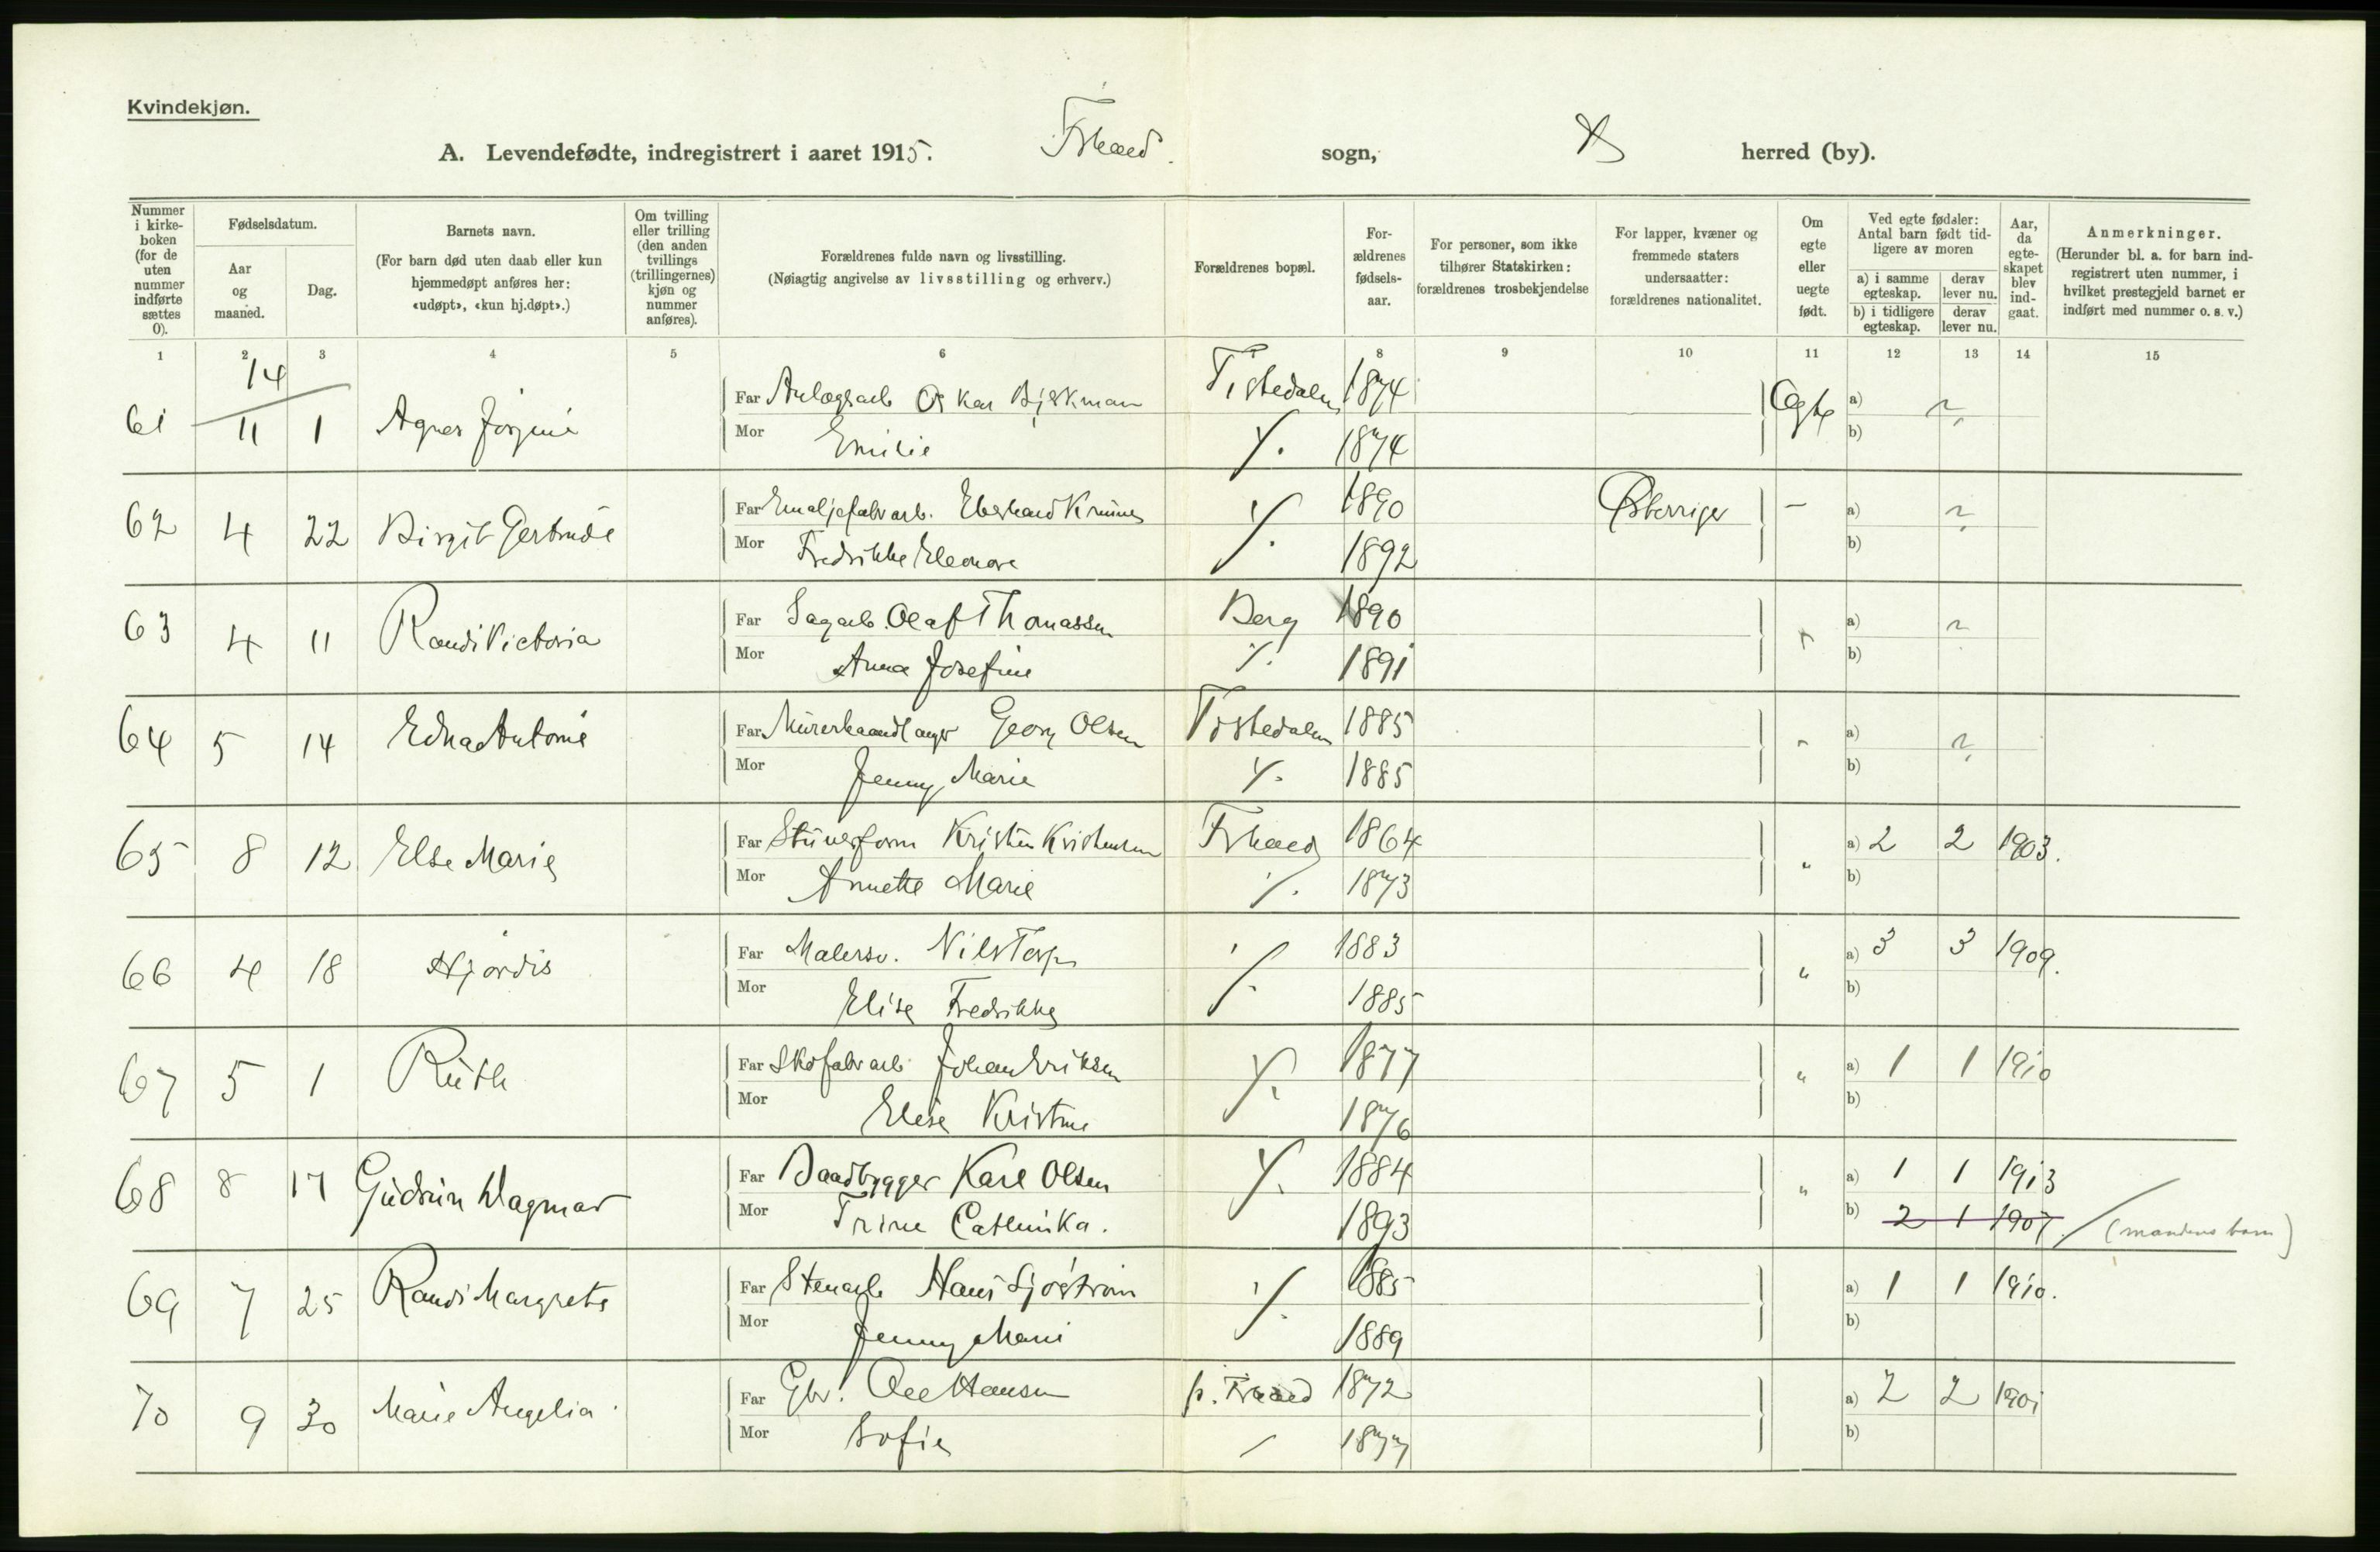 Kvindekjøn.
A. Levendefødte, indregistrert i aaret 1915. Frhald. sogn, herred (by).
Nummer i kirkeboken (for de uten nummer indførte sættes 0).
Fødselsdatum.
Aar og maaned.
Dag.
Barnets navn.
(For barn død uten daab eller kun hjemmedøpt anføres her: «udøpt», «kun hj.døpt».)
Om tvilling eller trilling (den anden tvillings (trillingernes) kjøn og nummer anføres).
Forældrenes fulde navn og livsstilling.
(Nøiagtig angivelse av livsstilling og erhverv.)
Forældrenes bopæl.
Forældrenes fødselsaar.
For personer, som ikke tilhører Statskirken: forældrenes trosbekjendelse
For lapper, kvæner og fremmede staters undersaatter: forældrenes nationalitet.
Om egte eller uegte født.
Ved egte fødsler: Antal barn født tidligere av moren
a) i samme egteskap. derav lever nu.
b) i tidligere egteskap. derav lever nu.
Aar, da egteskapet blev indgaat.
Anmerkninger.
(Herunder bl. a. for barn indregistrert uten nummer, i hvilket prestegjeld barnet er indført med nummer o. s. v.)
1 2 3 4 5 6 8 9 10 11 12 13 14 15
14
61 11 1 Agnes Jorgine Far Anlægsarb Oskar Bjerkman Tistedalen 1874 Egte a) ?
Mor Emilie 1874 b)
62 4 22 Birgit Gertrude Far Emaljefabrarb. Eberhard 1890 Østerriger - a) ?
Mor Fredrikke Eleonore 1892 b)
63 4 11 Randi Victoria Far Sagarb. Olaf Thomassen Berg 1890 a) ?
Mor Anna Josefine 1891 b)
64 5 14 Edna Antonie Far Murerhaandlanger Georg Olsen Tistedalen 1885 a) ?
Mor Jenny Marie 1885 b)
65 8 12 Else Marie Far Kristen Kristensen Frhald 1864 " a) 2 2 1903.
Mor Annette Marie 1873 b)
66 4 18 Hjørdis Far Malersv. Nils Torp 1883 " a) 3 3 1909.
Mor Elise Fredrikke 1885 b)
67 5 1 Ruth Far Skofabrarb Johan Eriksen 1877 " a) 1 1 1910
Mor Elise Kristine 1876 b)
68 8 17 Gudrun Dagmar Far Baadbygger Karl Olsen 1884 " a) 1 1 1913
Mor Trine Cathinka. 1893 b) 2 1 1907 (mandens barn)
69 7 25 Randi Margrete Far Stenarb Hans Sjøstrøm 1885 a) 1 1 1910.
Mor Jenny Marie 1889 b)
70 9 30 Marie Angelia Far Gbr. Ole Hansen p. Frhald 1872 a) 2 2 1901
Mor Sofie 1877 b)